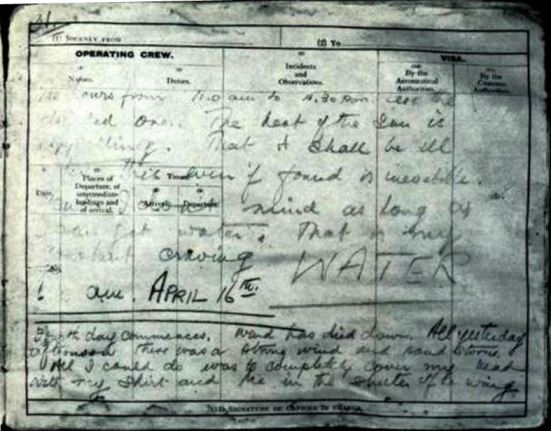 31.
(1) JOURNEY FROM
(2) TO
OPERATING CREW.
VISA.
Names.
Duties.
Incidents
and
Observations.
By the
Aeronautical
Authorities.
By the
Customs
Authorities.
The hours from 11.0 am to 4.30 pm are the
one. The heat of the sun is
appalling. That I shall be ill
this even if found is inevitable.
Date.
Places of
Departure, of
intermediate
landings and
of arrival.
Time
Arrival.
Departure.
mind as long as
I can get water. That is my
constant craving WATER
6 am. APRIL 16th.
day commences. Wind has died down. All yesterday
afternoon there was a strong wind and sand storm.
All I could do was to completely cover my head
with my shirt and lie in the shelter of the wing
SIGNATURE OF OFFICER IN CHARGE.